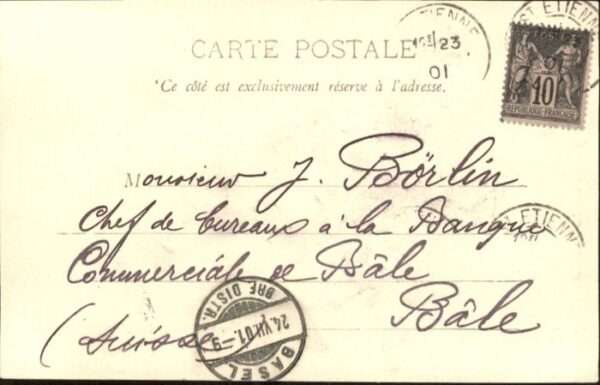 CARTE POSTALE
Ce côté est exclusivement réservé à l'adresse.
ETIENNE
23
01
ST ETIENNE
01
POSTES
10
REPUBLIQUE FRANÇAISE
Monsieur J. Börlin
Chef de bureaux à la Banque
Commerciale de Bâle
Bâle
(Suisse)
ST ETIENNE
BASEL
24.VII.01.-9
BRF. DISTR.